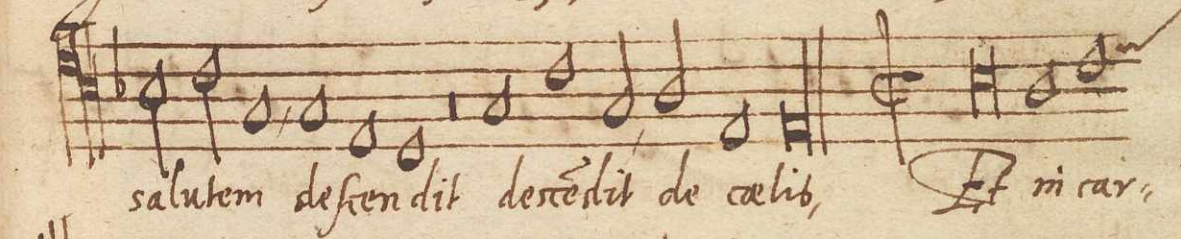 salutem descendit descēdit de cælis, Et in car=